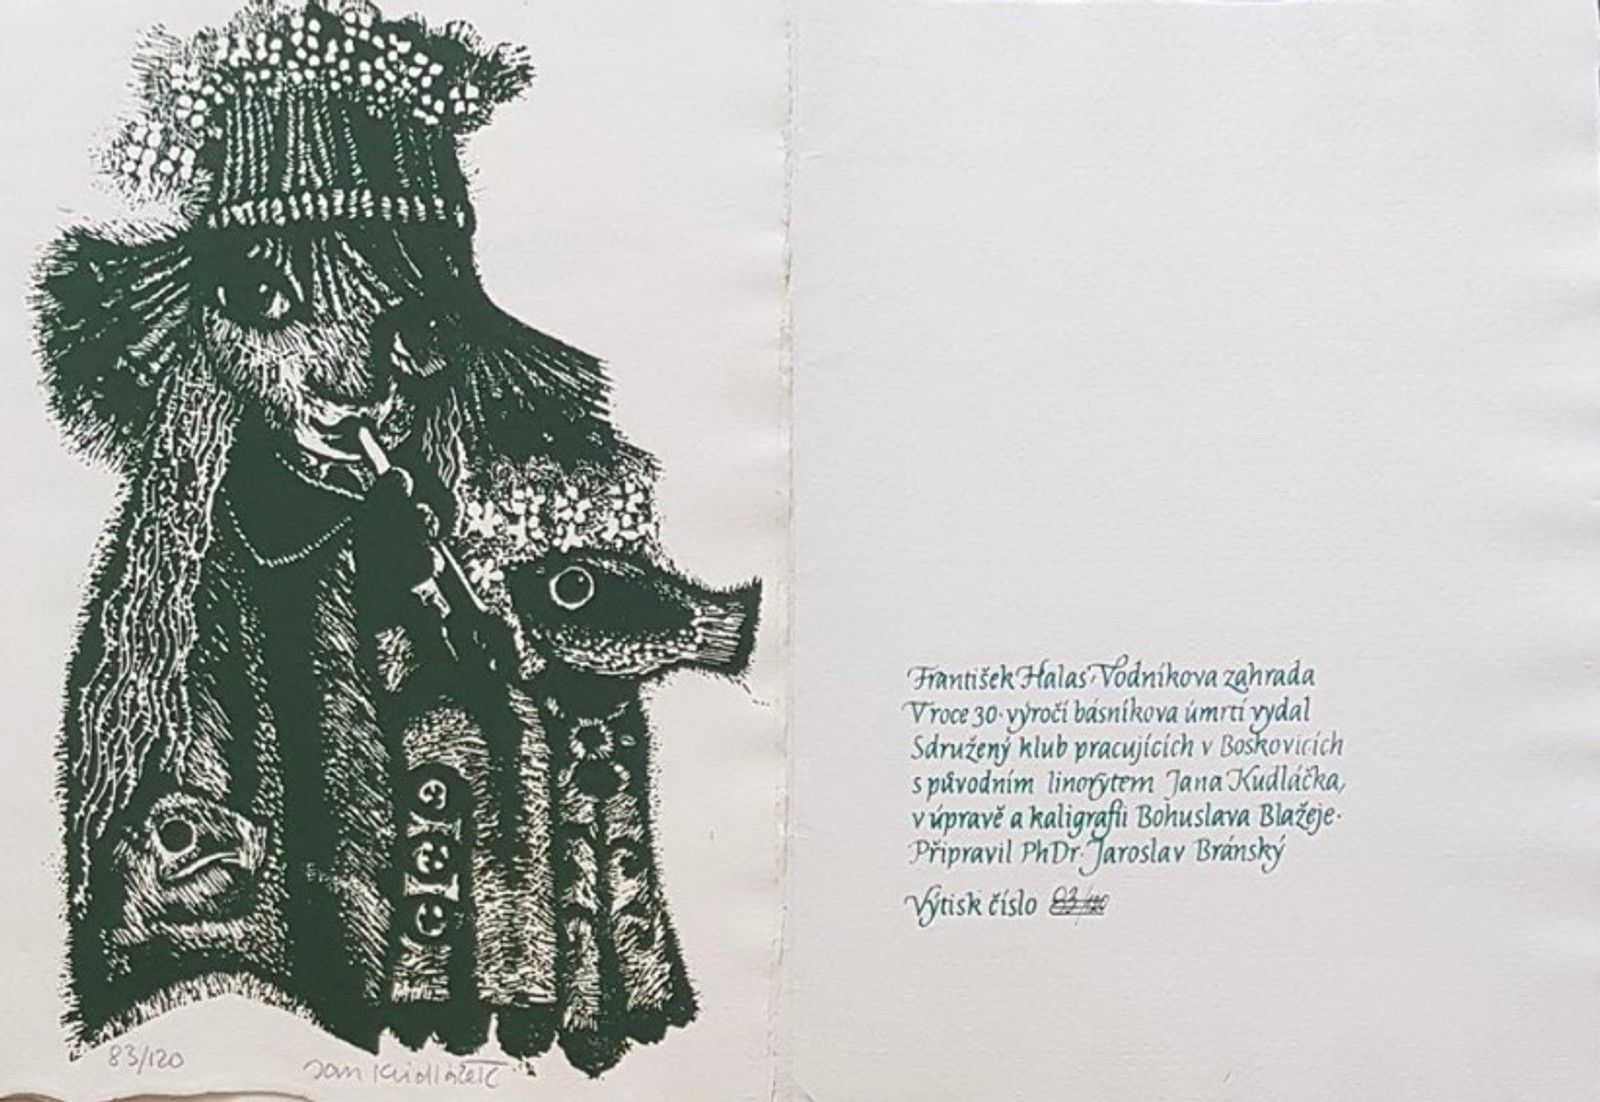 83/120
Jan Kudláček
František Halas · Vodníkova zahrada
V roce 30. výročí básníkova úmrtí vydal
Sdružený klub pracujících v Boskovicích
s původním linorytem Jana Kudláčka,
v úpravě a kaligrafii Bohuslava Blažeje.
Připravil PhDr. Jaroslav Bránský
Výtisk číslo 83/120